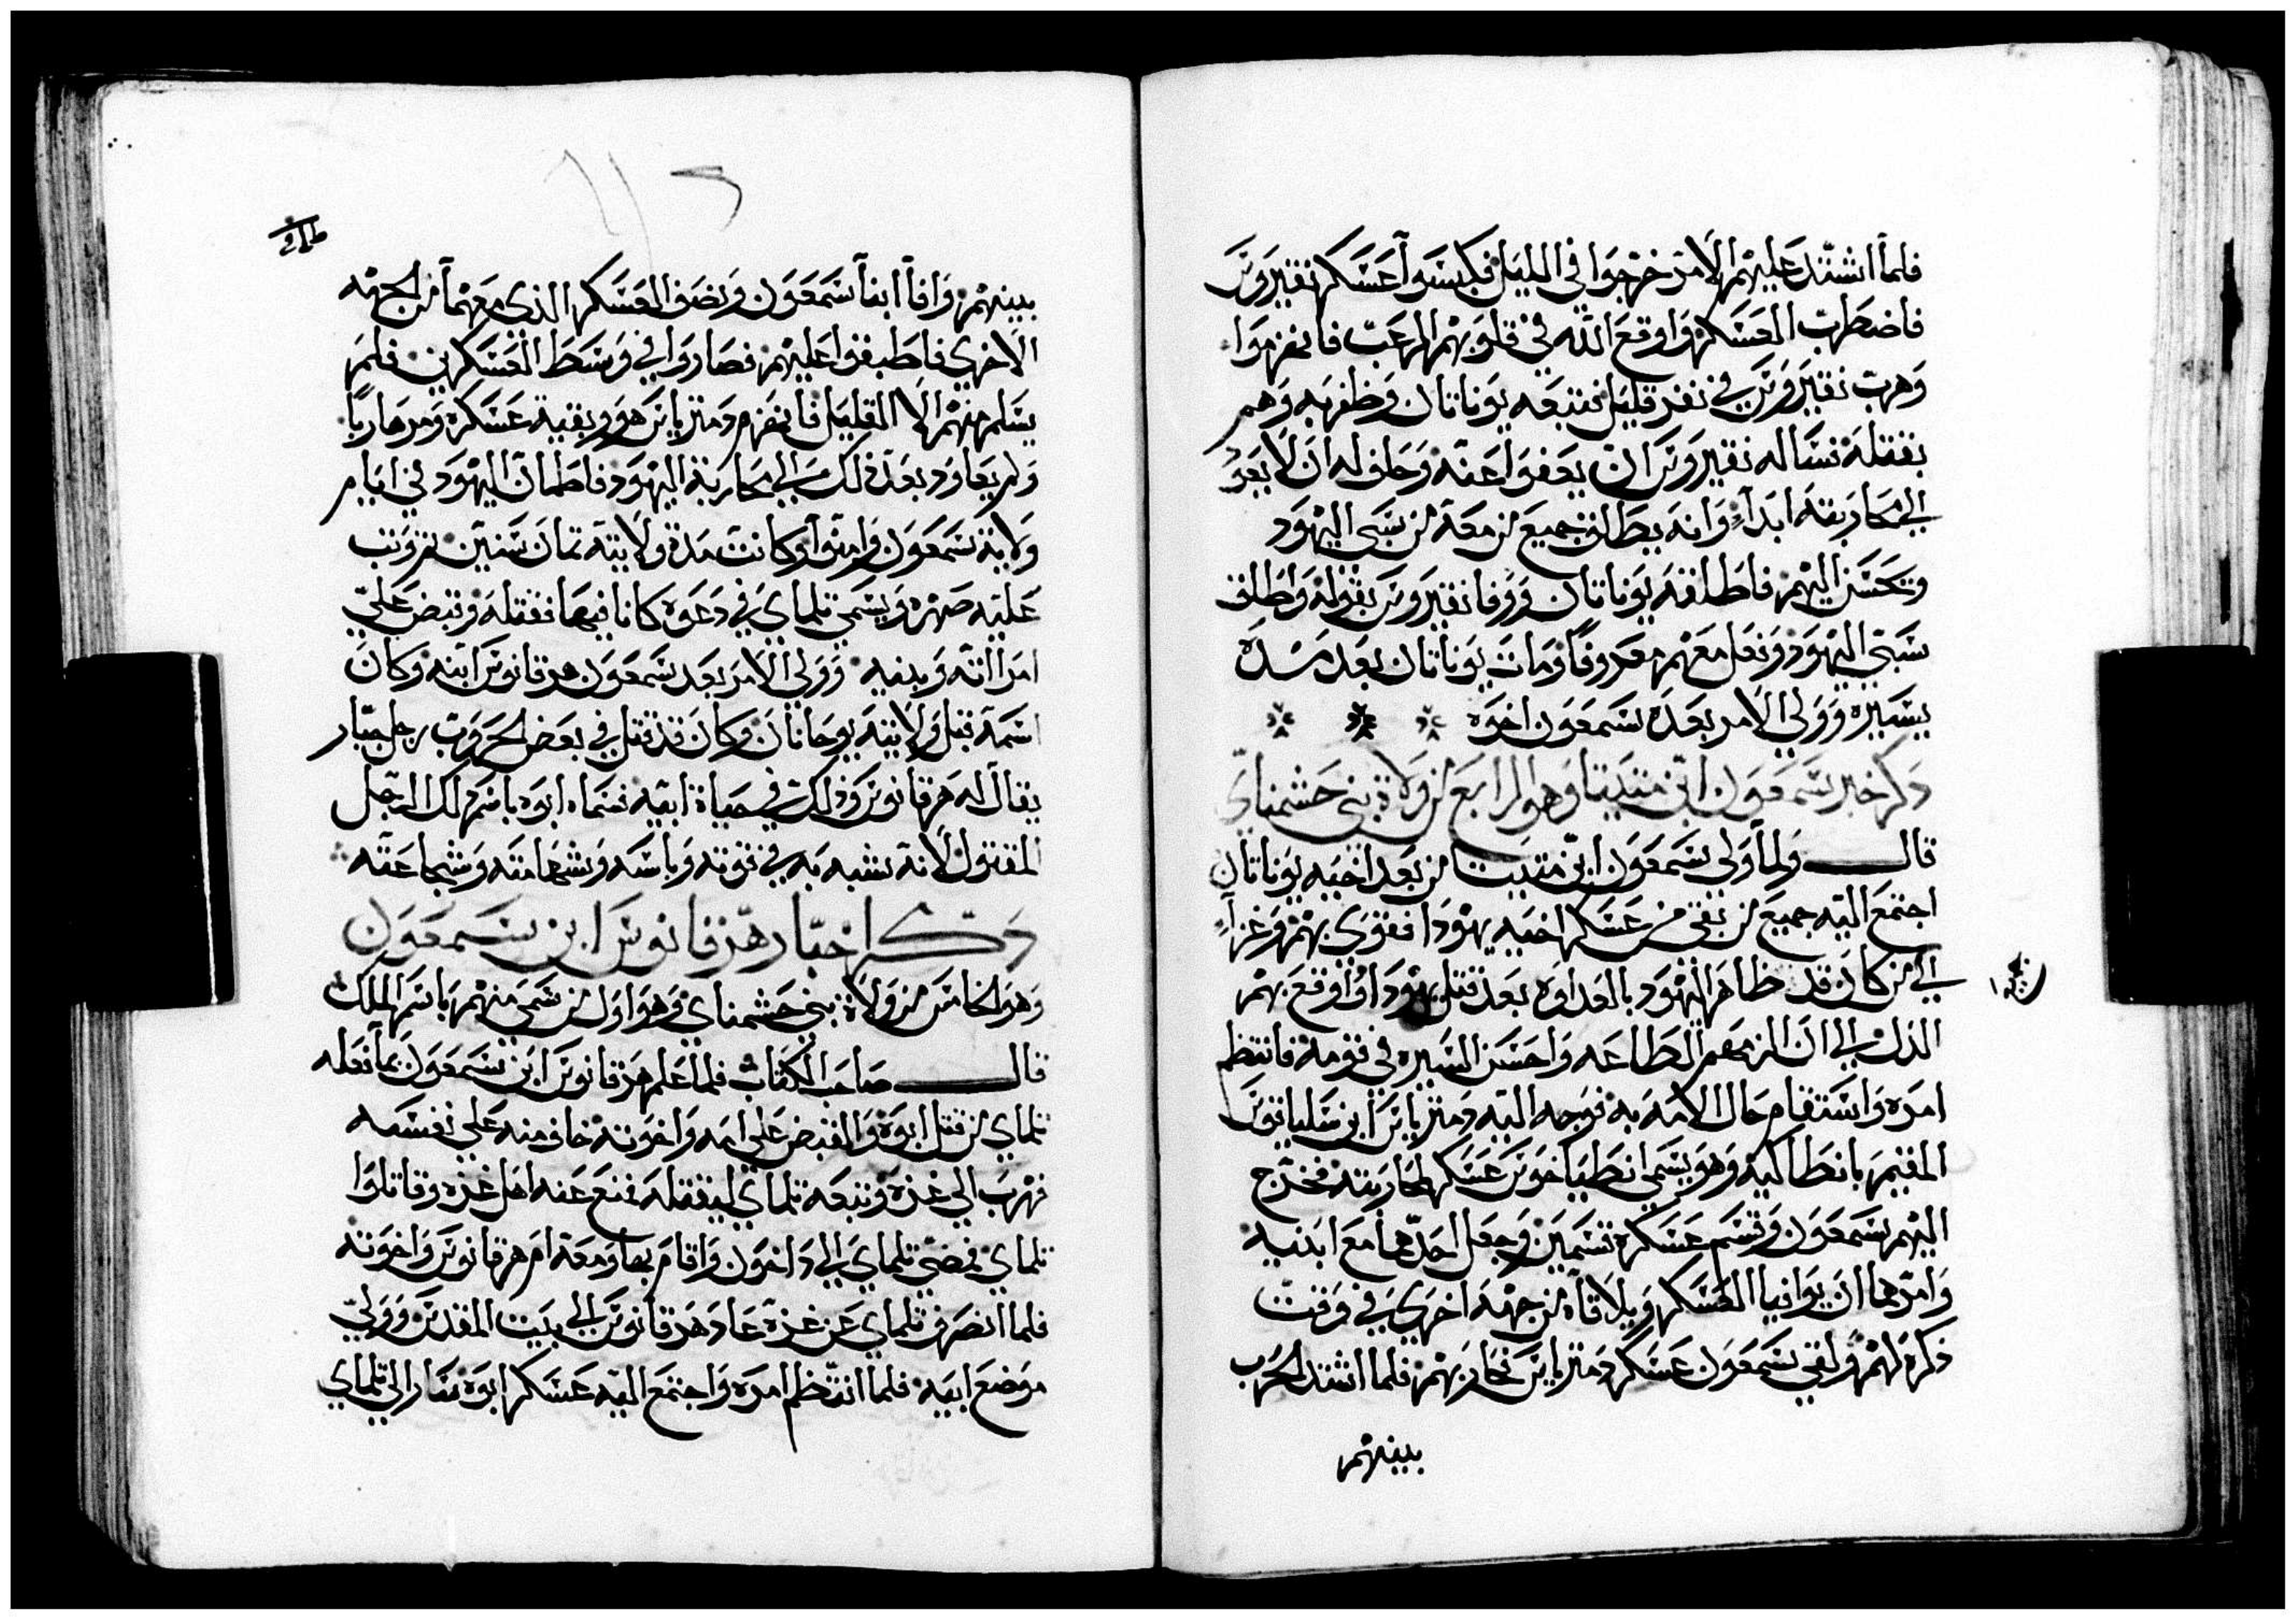 فلما اشتد عليهم الامر خرجوا في الليل فكبسوا عسكر نقيروس
فاضطرب العسكر واوقع الله في قلوبهم الرعب فانهزموا
وهرب نقيروس في نفر قليل فتبعه يوناتان وظفر به وهم
بقتله فساله نقيروس ان يعفوا عنه وحلف له ان لا يعود
الي محاربته ابدا وانه يطلق جميع من معه من سبي اليهود
ويحسن اليهم فاطلقه يوناتان ووفا نقيروس بقوله واطلق
سبي اليهود وفعل معهم معروفا ومات يوناتان بعد مده
يسيره وولي الامر بعده سمعون اخوه
ذكر خبر سمعون ابن متتيا وهو الرابع من ولاة بني حشمناي
قال ولما ولي سمعون ابن متتيا من بعد اخيه يوناتان
اجتمع اليه جميع من بقي من عسكر اخيه يهودا فقوي بهم وغزا
الي من كان قد ظاهر اليهود بالعداوه بعد قتل يهودا واوقع بهم
الذل الي ان الزمهم الطاعه واحسن السيره في قومه فانتظم
امره واستقام حال الامه به فوجه اليه دمترياس ابن سلياقوس
المقيم بانطاكيه وهو يسمي انطياخوس عسكر لمحاربته فخرج
اليهم سمعون وقسم عسكره قسمين وجعل احدهما مع ابنيه
وامرهما ان يوافيا العسكر ويلاقاه من جهة اخري في وقت
ذكره لهم ولقي سمعون عسكر دمترياس فحاربهم فلما اشتد الحرب
بينهم
بينهم وافا ابنا سمعون ونصف العسكر الذي معهما من الجهه
الاخري فاطبقوا عليهم فصاروا في وسط العسكرين فلم
يسلم منهم الا القليل فانهزم دمترياس هو وبقية عسكره ومر هاربا
ولم يعاود بعد ذلك الي محاربة اليهود فاطمان اليهود في ايام
ولاية سمعون وامنوا وكانت مدة ولايته ثمان سنين ثم وثب
عليه صهره ويسمي تلماي في دعوه كانا فيها فقتله وقبض علي
امراته وبنيه وولي الامر بعد سمعون هرقانوس ابنه وكان
اسمه قبل ولايته يوحانان وكان قد قتل في بعض الحروب رجل جبار
يقال له هرقانوس وذلك في حياة ابيه فسماه ابوه باسم ذلك الرجل
المقتول لانه شبه به في قوته وباسه وشهامته وشجاعته
ذكر اخبار هرقانوس ابن سمعون
وهو الخامس من ولاة بني حشمناي وهو اول من سمي منهم باسم الملك
قال صاحب الكتاب فلما علم هرقانوس ابن سمعون بما فعله
تلماي من قتل ابوه والقبض علي امه واخوته خاف منه علي نفسه
فهرب الي غزه وتبعه تلماي ليقتله فمنع عنه اهل غزه وقاتلوا
تلماي فمضي تلماي الي داخون واقام بها ومعه ام هرقانوس واخوته
فلما انصرف تلماي عن غزة عاد هرقانوس الي بيت المقدس وولي
موضع ابيه فلما انتظم امره واجتمع اليه عسكر ابوه سار الي تلماي